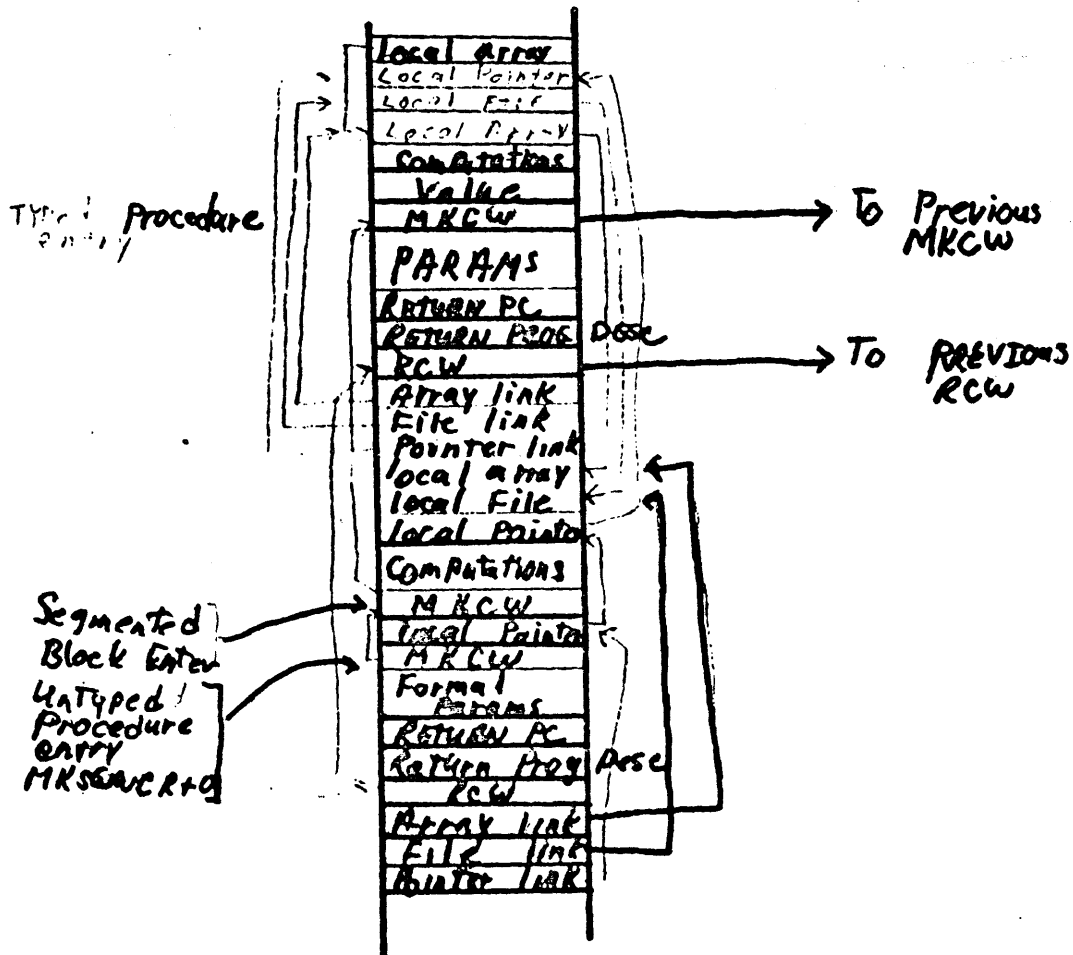 Local Array
Local Pointer
Local File
Local Array
Computations
Value
MKCW
PARAMS
RETURN PC
RETURN PROG Desc
RCW
Array link
File link
Pointer link
local array
local File
local Pointe
Computations
MKCW
local Pointe
MKCW
Formal
Params
RETURN PC
Return Prog Desc
RCW
Array link
File link
Pointer link
Typed Procedure
entry
To Previous
MKCW
To PREVIOUS
RCW
Segmented
Block Enter
UnTyped
Procedure
entry